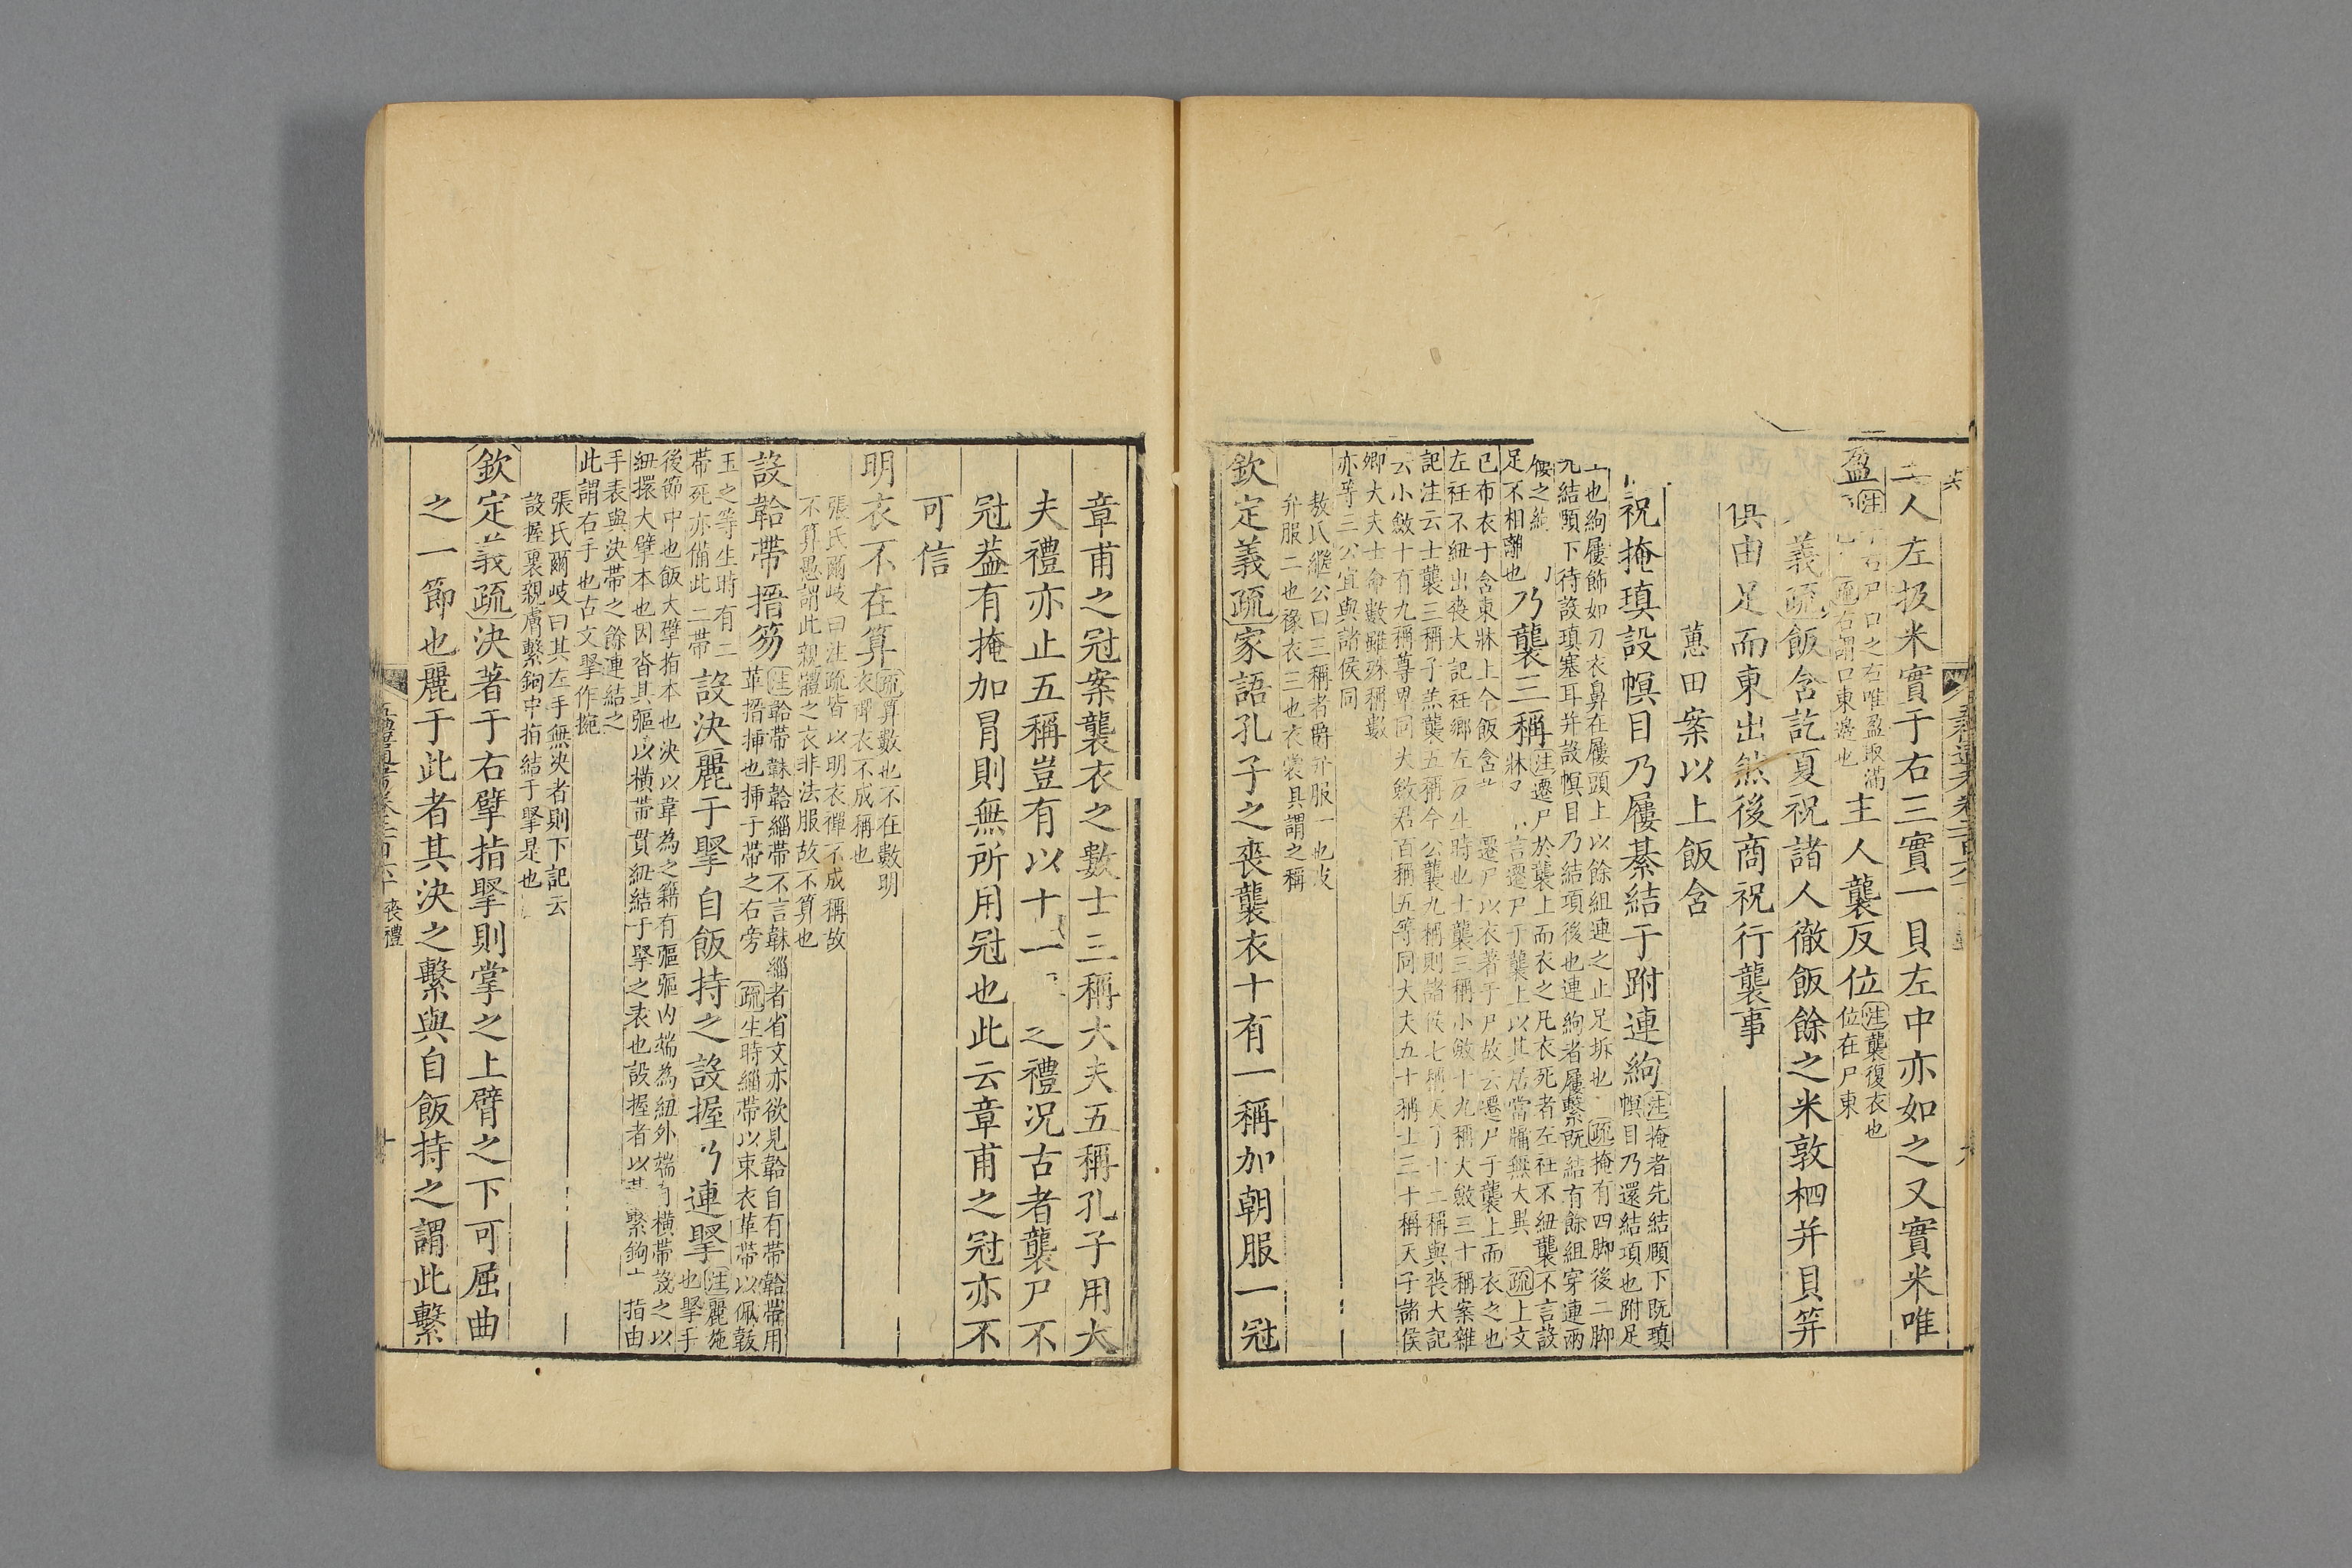 人左扱米實于右三實一貝左中亦如之又實米唯
盈
注
右尸口之右唯盈取滿
疏右謂口東邊也
主人襲反位
注襲復衣也
位在尸東
義疏飯含訖夏祝諸人徹飯餘之米敦柶并貝笲
俱由足而東出然後商祝行襲事
蕙田案以上飯含
祝掩瑱設幎目乃屨綦結于跗連絇
注掩者先結頤下既瑱
幎目乃還結項也跗足
上也絇屨飾如刀衣鼻在屨頭上以餘組連之止足坼也
疏掩有四脚後二脚
先結頤下待設瑱塞耳并設幎目乃結項後也連絇者屨繫既結有餘組穿連兩
屨之絇
足不相離也
乃襲三稱
注遷尸於襲上而衣之凡衣死者左衽不紐襲不言設
牀
言遷尸于襲上以其居當牖無大異
疏上文
已布衣于含東牀上今飯含
遷尸以衣著于尸故云遷尸于襲上而衣之也
左衽不紐出喪大記衽鄉左反生時也士襲三稱小斂十九稱大斂三十稱案雜
記注云士襲三稱子羔襲五稱今公襲九稱則諸侯七稱天子十二稱與喪大記
云小斂十有九稱尊卑同大斂君百稱五等同大夫五十稱士三十稱天子諸侯
卿大夫士命數雖殊稱數
亦等三公宜與諸侯同
敖氏繼公曰三稱者爵弁服一也皮
弁服二也褖衣三也衣裳具謂之稱
欽定義疏家語孔子之喪襲衣十有一稱加朝服一冠
章甫之冠案襲衣之數士三稱大夫五稱孔子用大
夫禮亦止五稱豈有以十一
之禮况古者襲尸不
冠葢有掩加冒則無所用冠也此云章甫之冠亦不
可信
明衣不在算
疏算數也不在數明
衣襌衣不成稱也
張氏爾岐曰注疏皆以明衣襌不成稱故
不算愚謂此親體之衣非法服故不算也
設韐帶搢笏
注韐帶韎韐緇帶不言韎緇者省文亦欲見韐自有帶韐帶用
革搢揷也揷于帶之右旁
疏生時緇帶以束衣革帶以佩韍
玉之等生時有二
帶死亦備此二帶
設決麗于掔自飯持之設握乃連掔
注麗施
也掔手
後節中也飯大擘指本也決以韋為之籍有彄彄内端為紐外端有横帶設之以
紐擐大擘本也因沓其彄以横帶貫紐結于掔之表也設握者以其繫鉤中指由
手表與決帶之餘連結之
此謂右手也古文掔作捥
張氏爾岐曰其左手無決者則下記云
設握裏親膚繫鉤中指結于掔是也
欽定義疏決著于右擘指掔則掌之上臂之下可屈曲
之一節也麗于此者其決之繫與自飯持之謂此繫